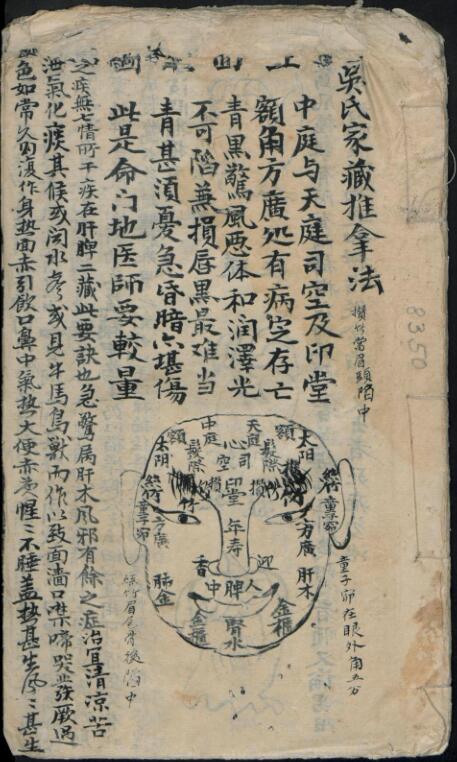 吳氏家藏推拿法
攢竹當眉頭陷中
中庭与天庭司空及印堂
額角方廣処有病定存亡
青黑驚風悪体和润澤光
不可陷兼損唇黑最难当
青甚須憂急昏暗亦堪傷
此是命门地医師要較量
之疾無七情所干疾在肝脾二藏此要訣也急驚属肝木风邪有餘之症治宜清涼苦
洩氣化痰其候或闻水声或見牛馬鳥獸而作以致面濇口噤啼哭發厥過
色如常久则復作身热面赤引飲口鼻中氣热大便赤惺〻不睡盖热甚生风〻甚生
童子窌在眼外角五分
絲竹眉尾骨後陷中
8350
中庭
天庭
額
額
司空
心
髮際
髮際
太陽
太阴
攢竹
印堂
絲竹
童子窌
方廣
方廣
年寿
迎香
人中
脾
肝木
肺金
金櫃
金櫃
腎水